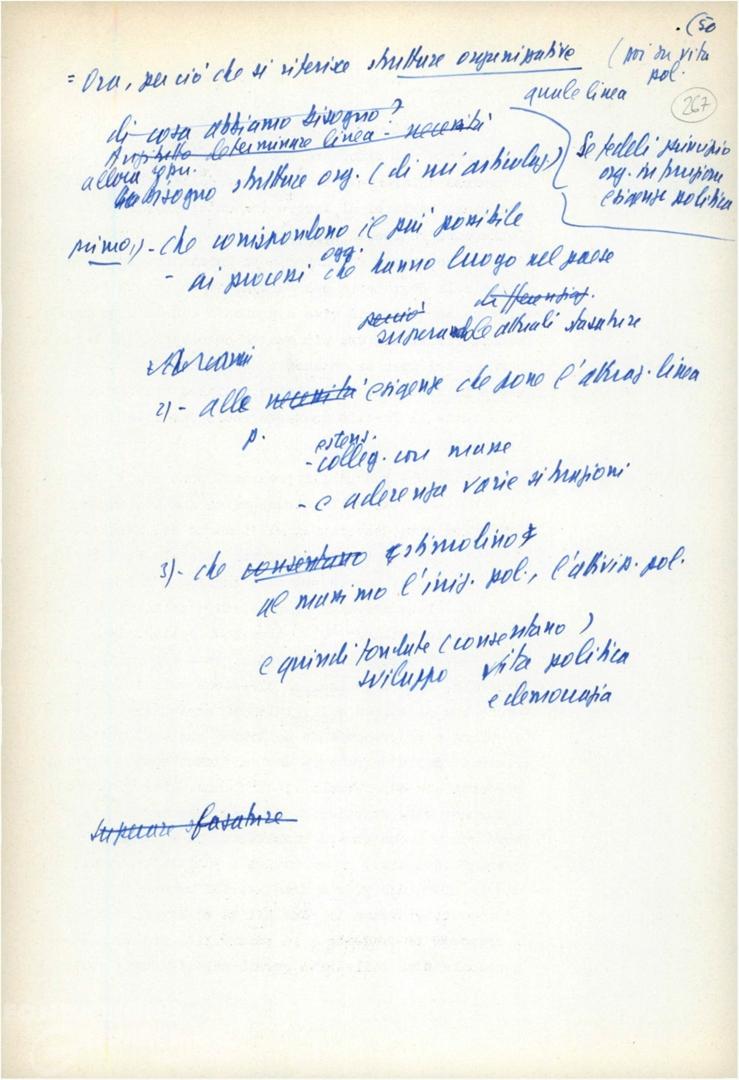 (50
= Ora, per ciò che si riferisce strutture organizzative
(poi su vita
pol.
quale linea
267
di cosa abbiamo bisogno?
Anzitutto determinare linea - necessità
allora
bisogno strutture org. (di cui articolaz)
Se fedeli principio
org. in funzione
esigenze politica
primo 1) - che corrispondono il più possibile
oggi
- ai processi che hanno luogo nel paese
differenziaz.
perciò
superando le attuali sfasature
2) - alle necessità esigenze che pone l'attuaz. linea
p.
estens.
- colleg. con masse
- e aderenza varie situazioni
3) - che consentano stimolino
al massimo l'iniz. pol., l'attiviz. pol.
e quindi fondate (consentano)
sviluppo vita politica
e democrazia
superare sfasature